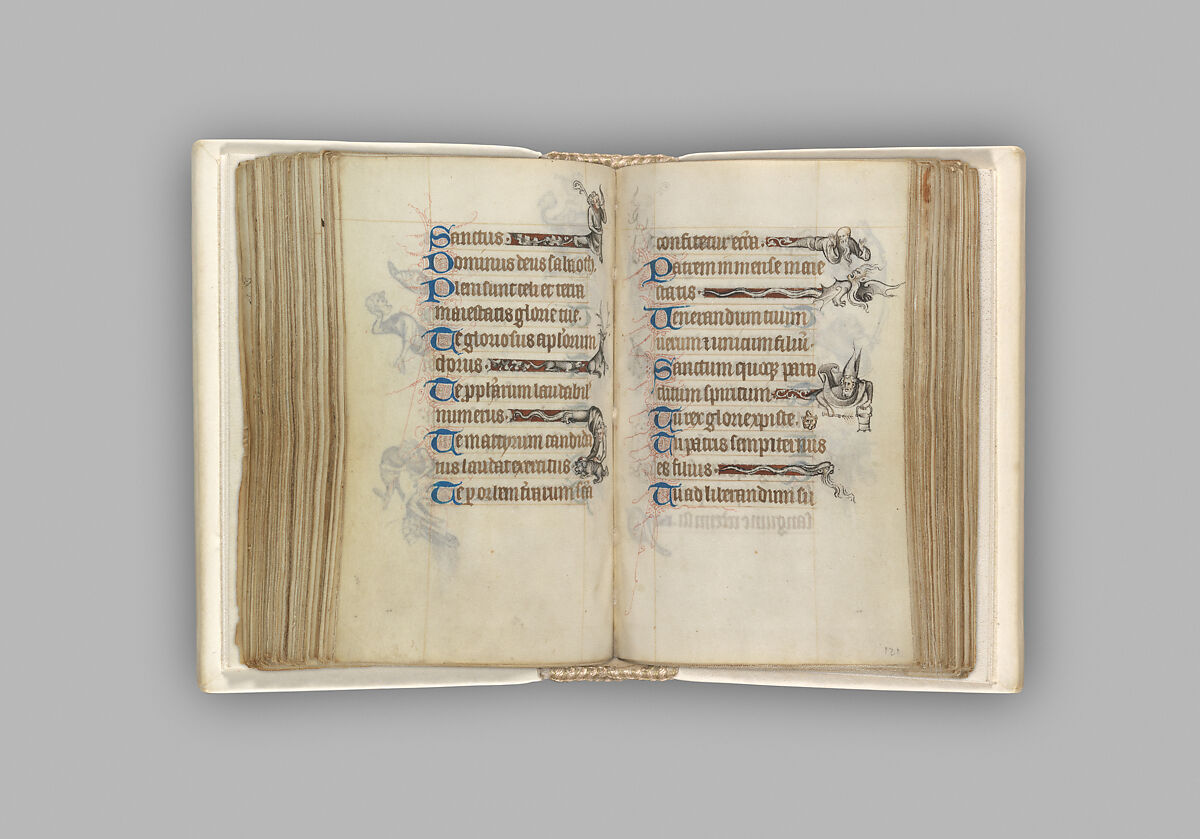 Sanctus.
Dominus deus sabaoth.
Pleni sunt celi et terra
maiestatis glorie tue.
Te gloriosus aplorum
chorus.
Te ppharum laudabil
numerus.
Te martyrum candida
tus laudat exercitus
Te per orbem trarum sca
confitetur ecca.
Patrem inmense maie
statis
Venerandum tuum
uerum et unicum filiu.
Sanctum quoqz para
clitum spiritum.
Tu rex glorie xpiste.
Tu patris sempiternus
es filius.
Tu ad liberandum su
121